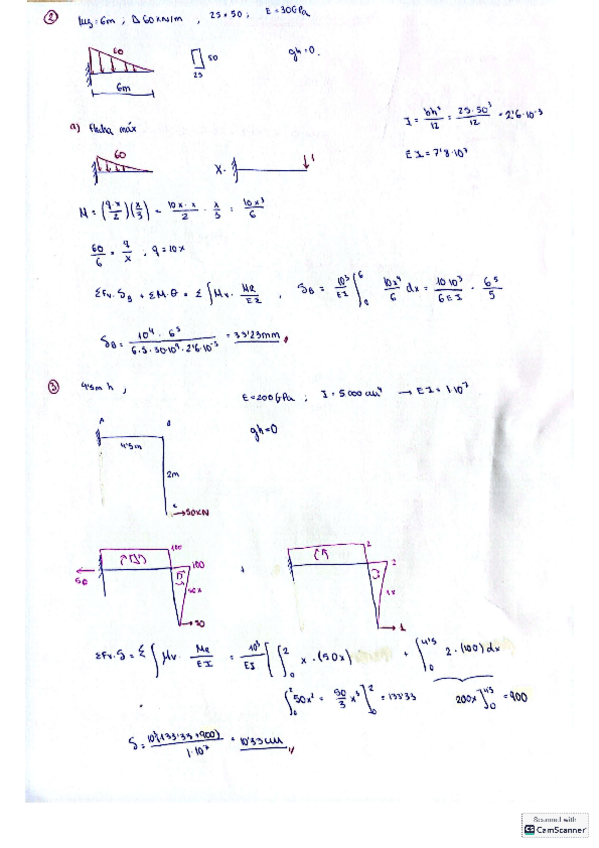 ② luz = 6m ; Δ 60 kN/m , 25 × 50 ; E = 30 GPa
60
50
25
gh = 0.
6m
I = bh³/12 = 25·50³/12 = 2'6·10⁻³
a) Flecha máx
EI = 7'8·10⁷
60
X.
1
M = (q·x/2)(x/3) = 10x·x/2 · x/3 = 10x³/6
60/6 = q/x , q = 10x
ΣFv·δB + ΣM·θ = Σ∫Mv· MR/EI , δB = 10³/EI ∫₀⁶ 10x⁴/6 dx = 10·10³/6EI · 6⁵/5
δB = 10⁴·6⁵/6·5·30·10⁹·2'6·10⁻³ = 33'23mm
③ 4'5m h ,
E = 200 GPa ; I = 5000 cm⁴ → EI = 1·10⁷
A
B
gh = 0
4'5m
2m
C
50KN
100
100
50
50x
50
+
2
2
1x
1
ΣFv·δ = Σ∫Mv· MR/EI = 10³/EI [∫₀² x·(50x) + ∫₀^4'5 2·(100)dx
∫₀² 50x² = 50/3 x³]₀² = 133'33
200x]₀^4'5 = 900
δ = 10³(133'33+900)/1·10⁷ = 10'33cm
Scanned with
CS CamScanner